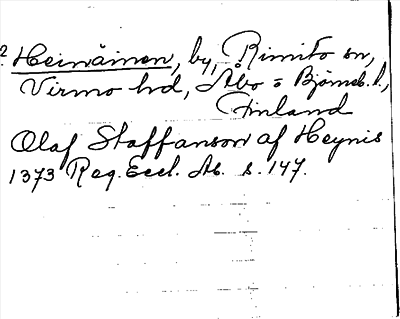 ? Heinäinen, by, Rimito sn,
Virmo hd, Åbo = Björneb. l.,
Finland
Olaf Staffanson af Heynis
1373 Reg. Eccl. Ab. s. 147.